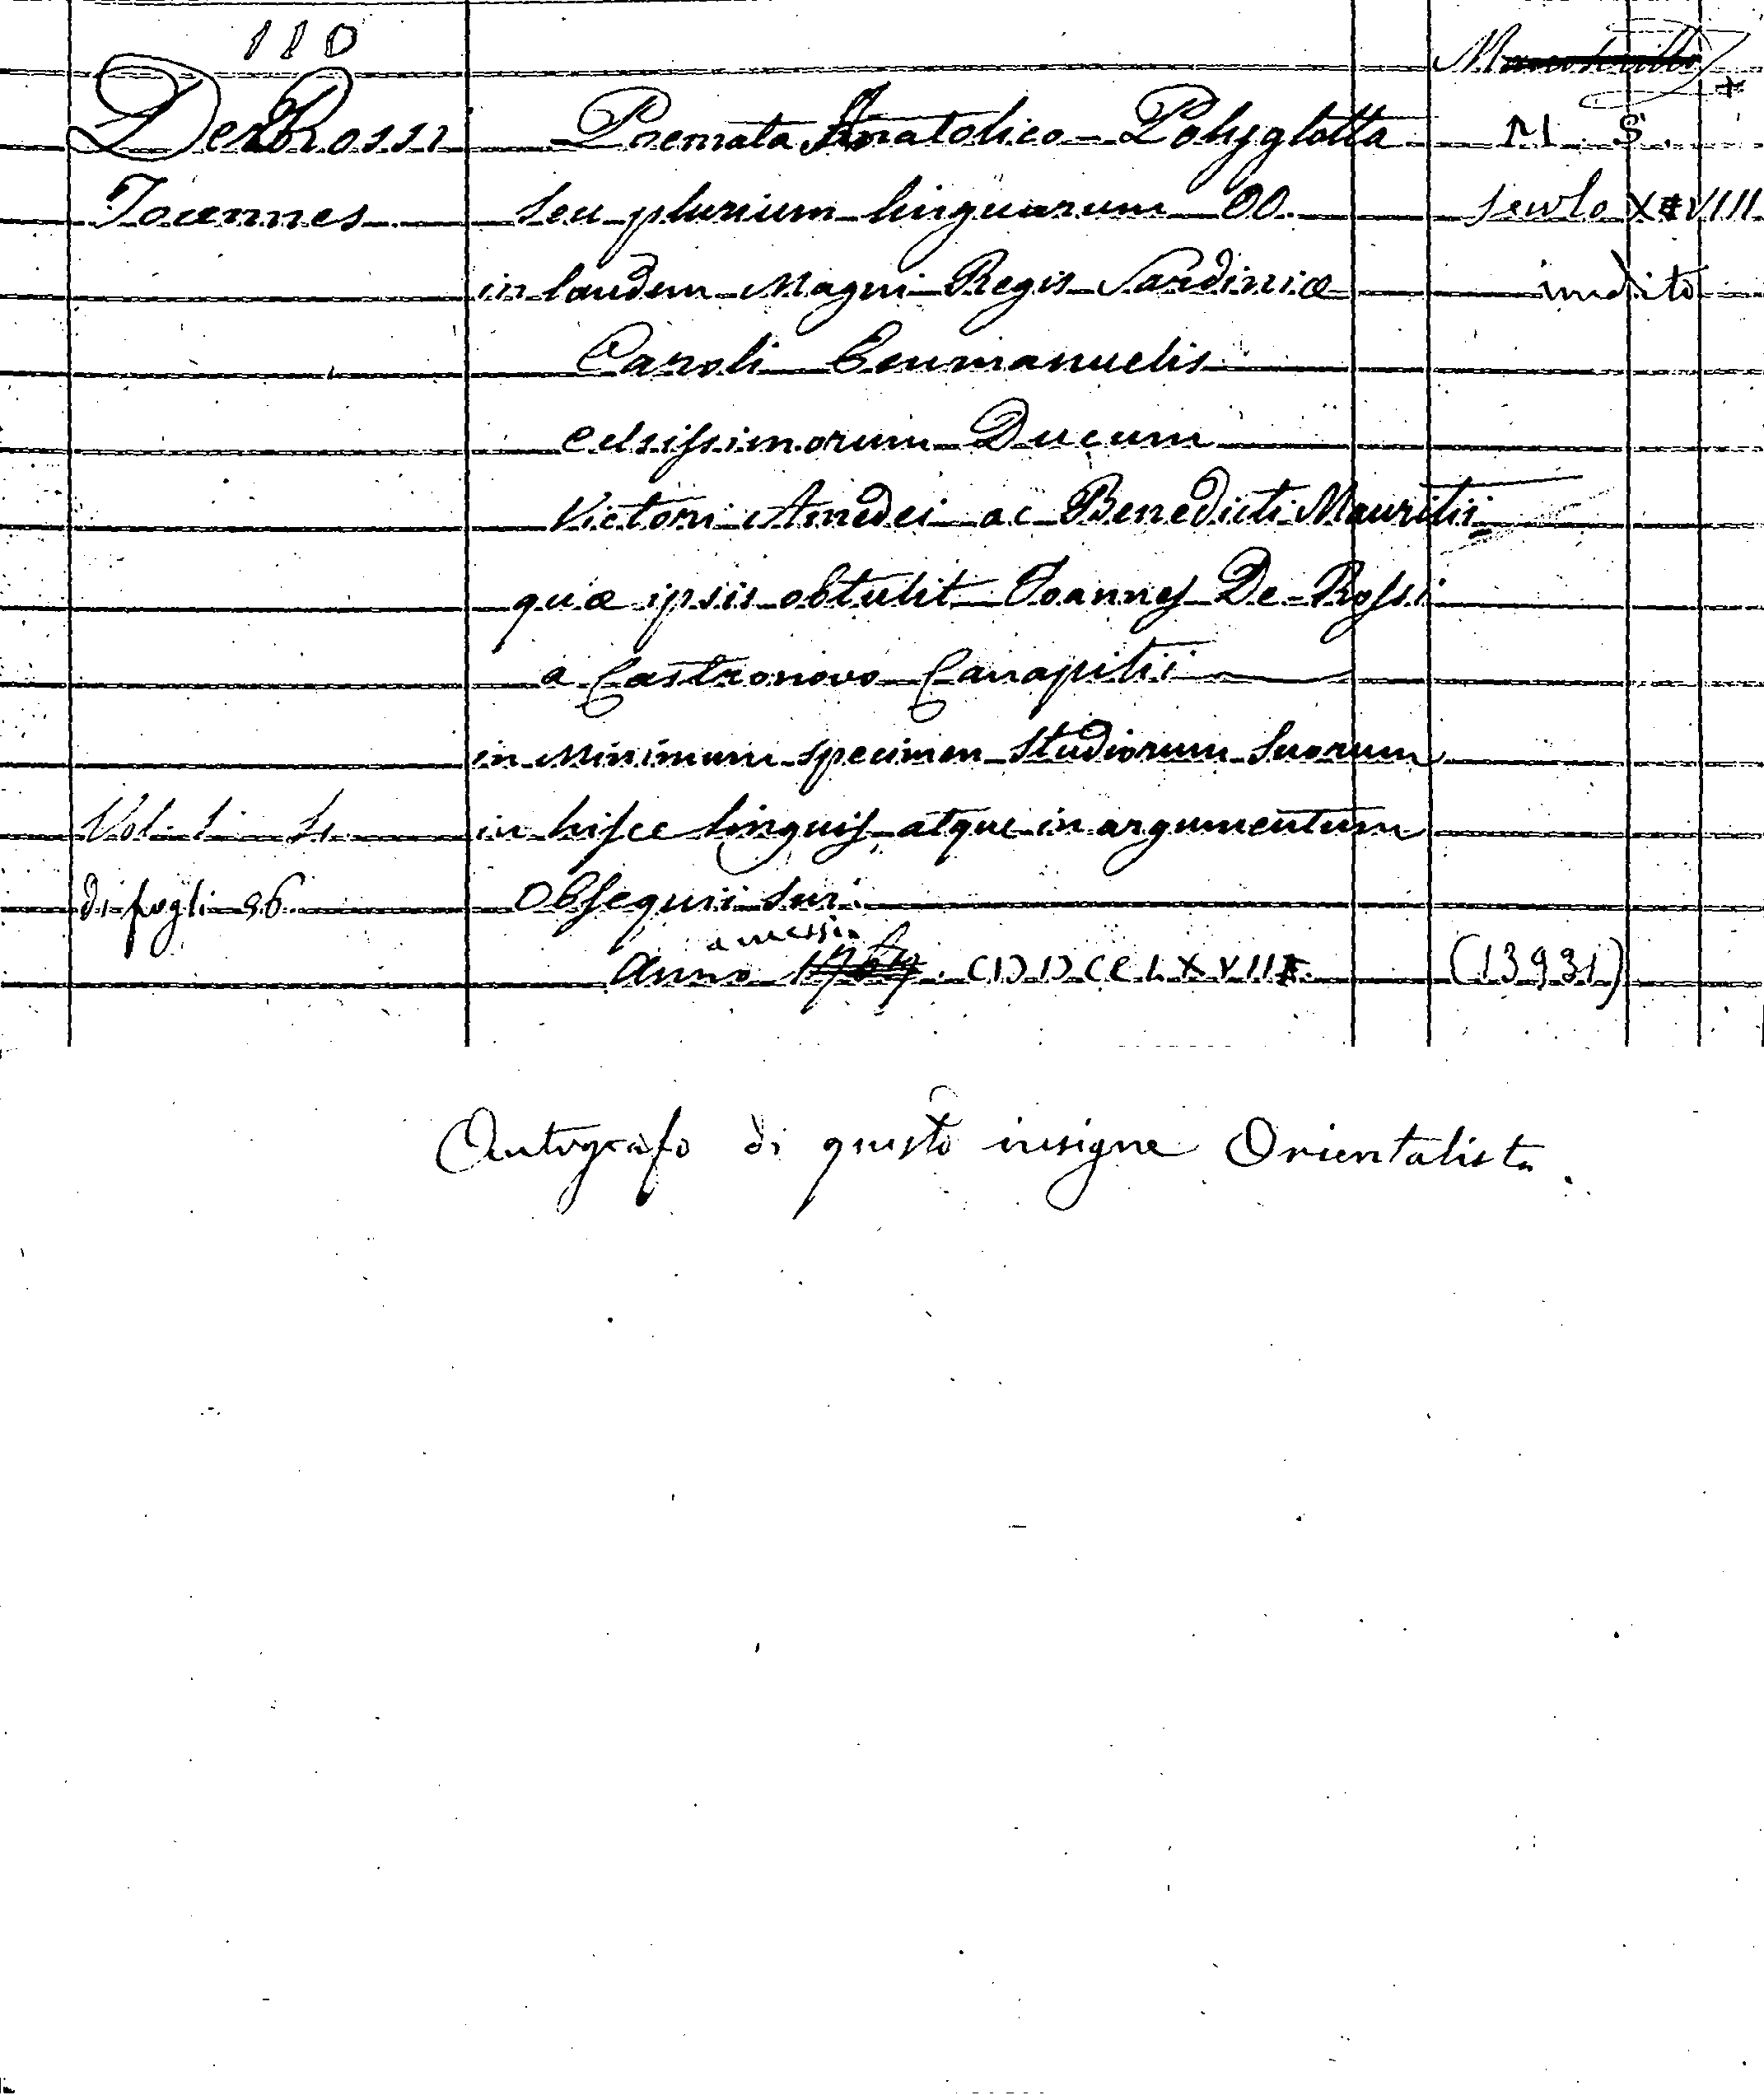 110
De Rossi
Ioannes
Poemata Anatolico-Polyglotta
seu plurium linguarum OO.
in laudem Magni Regis Sardiniæ
Caroli Emmanuelis
celsissimorum Ducum
Victori Amedei ac Benedicti Mauritii
quæ ipsis obtulit Joannes De-Rossi
a Castronovo Canapitii
in Minimum specimen Studiorum Suorum
in hisce linguis, atque in argumentum
Obsequii sui.
a messia
Anno CIƆ IƆ CC LXVIII
Vol. 1
di fogli 96
M. S.
secolo XVIII
inedito
(13931)
Autografo di questo insigne Orientalista.